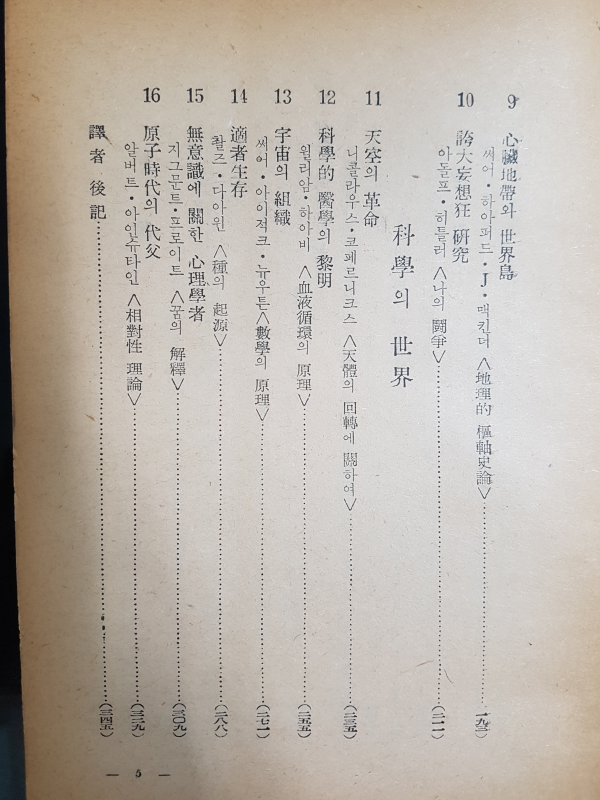 9 心臟地帶와 世界島
써어·하아퍼드·J·맥킨더 <地理的 樞軸史論> (一九三)
10 誇大妄想狂 硏究
아돌프·히틀러 <나의 鬪爭> (二一一)
科學의 世界
11 天空의 革命
니콜라우스·코페르니크스 <天體의 回轉에 關하여> (二三五)
12 科學的 醫學의 黎明
윌리암·하아비 <血液循環의 原理> (二五五)
13 宇宙의 組織
써어·아이젝크·뉴우튼 <數學의 原理> (二七一)
14 適者生存
촬즈·다아윈 <種의 起源> (二八八)
15 無意識에 關한 心理學者
지그문트·프로이트 <꿈의 解釋> (三〇九)
16 原子時代의 代父
알버트·아인슈타인 <相對性 理論> (三二九)
譯者 後記 (三四五)
— 5 —